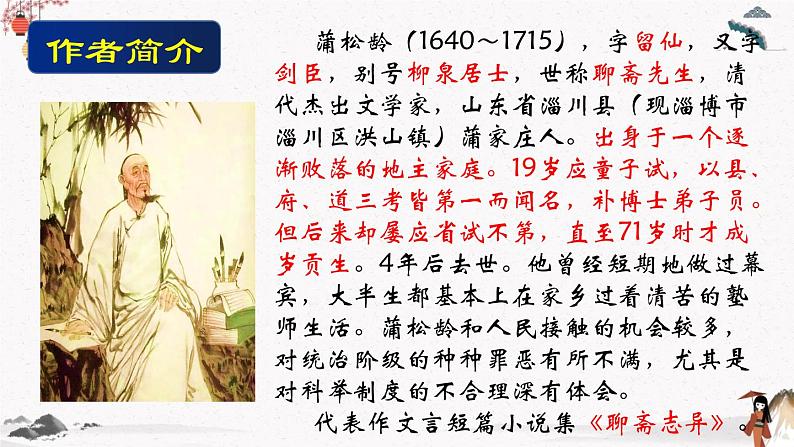 作者简介
蒲松龄（1640～1715），字留仙，又字
剑臣，别号柳泉居士，世称聊斋先生，清
代杰出文学家，山东省淄川县（现淄博市
淄川区洪山镇）蒲家庄人。出身于一个逐
渐败落的地主家庭。19岁应童子试，以县、
府、道三考皆第一而闻名，补博士弟子员。
但后来却屡应省试不第，直至71岁时才成
岁贡生。4年后去世。他曾经短期地做过幕
宾，大半生都基本上在家乡过着清苦的塾
师生活。蒲松龄和人民接触的机会较多，
对统治阶级的种种罪恶有所不满，尤其是
对科举制度的不合理深有体会。
代表作文言短篇小说集《聊斋志异》。